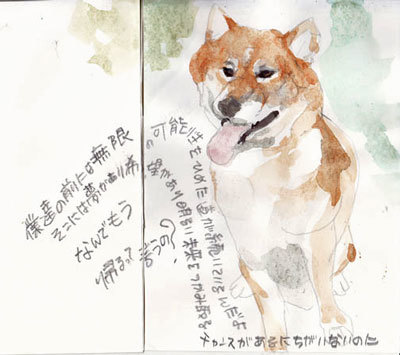 僕達の前には無限
の可能性をひめた道が続いているんだよ
そこには夢があり希
望があり明るい未来をつかみ取る
チャンスがあるにちがいないのに
なんでもう
帰るって
言うの?